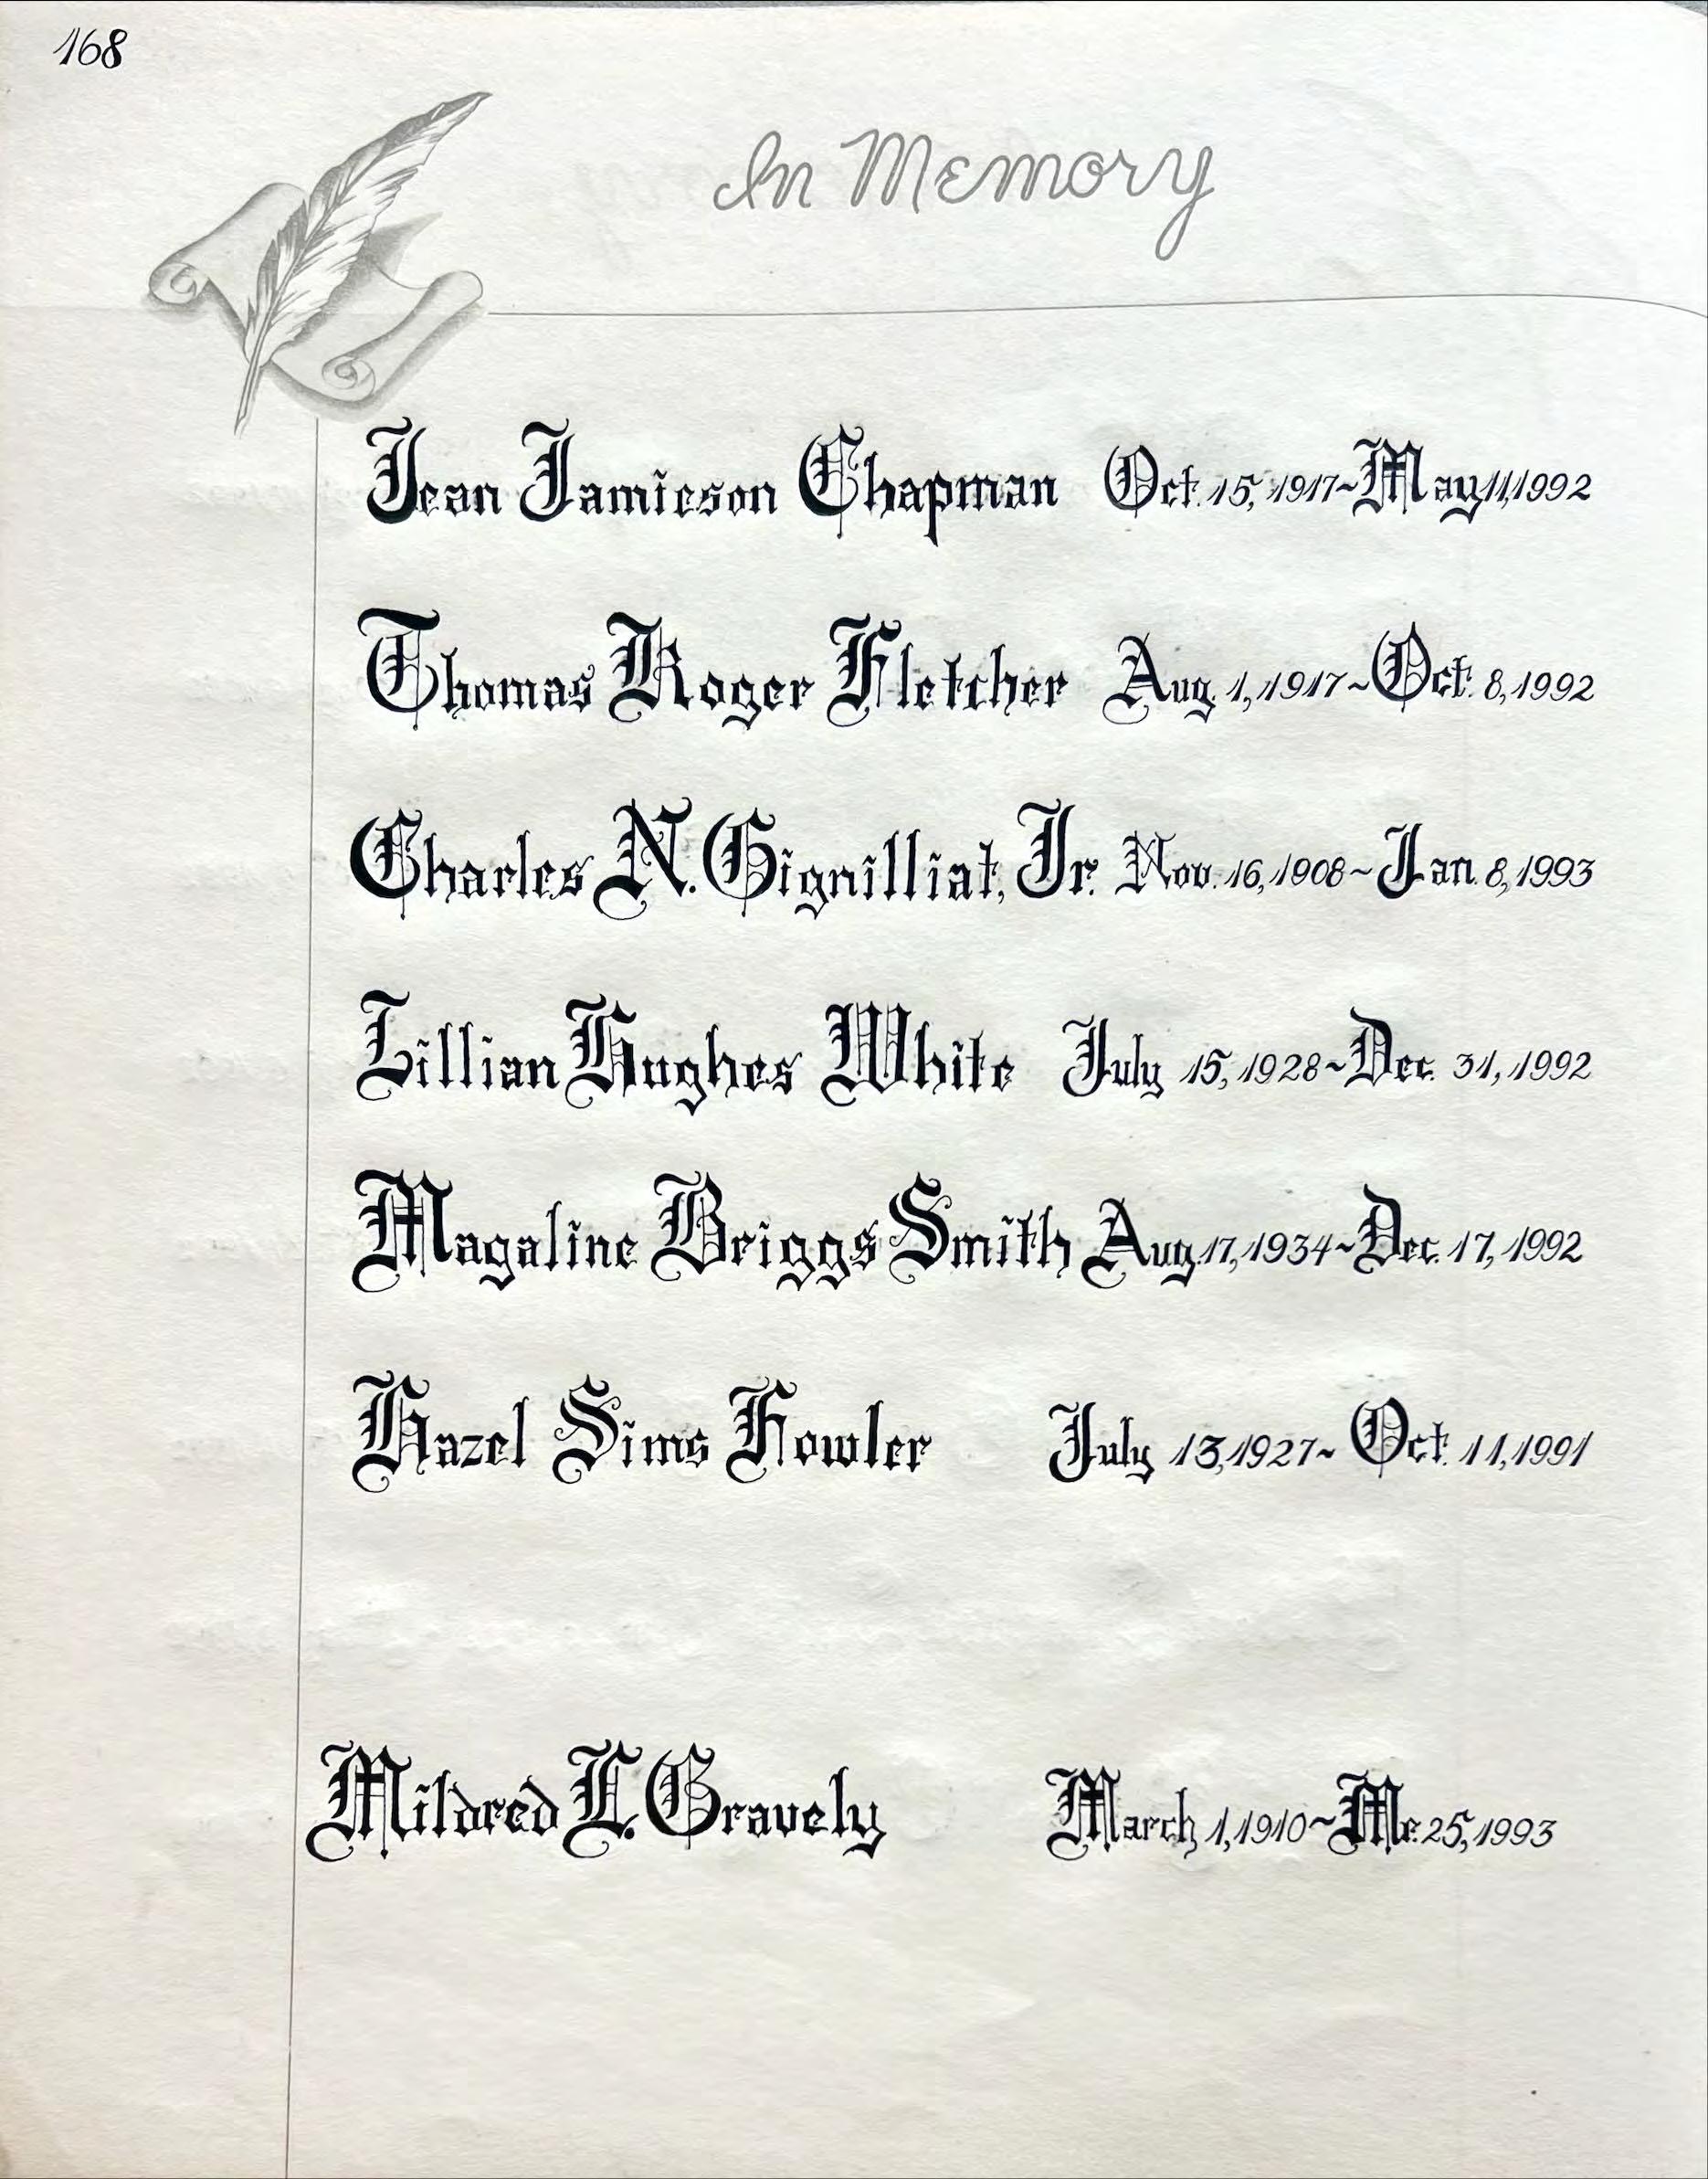 168
In Memory
Jean Jamieson Chapman Oct. 15, 1917~May 11, 1992
Thomas Roger Fletcher Aug. 1, 1917~Oct. 8, 1992
Charles N. Gignilliat, Jr. Nov. 16, 1908~Jan. 8, 1993
Lillian Hughes White July 15, 1928~Dec. 31, 1992
Magaline Briggs Smith Aug. 17, 1934~Dec. 17, 1992
Hazel Sims Fowler July 13, 1927~Oct. 11, 1991
Mildred L. Gravely March 1, 1910~Mr. 25, 1993